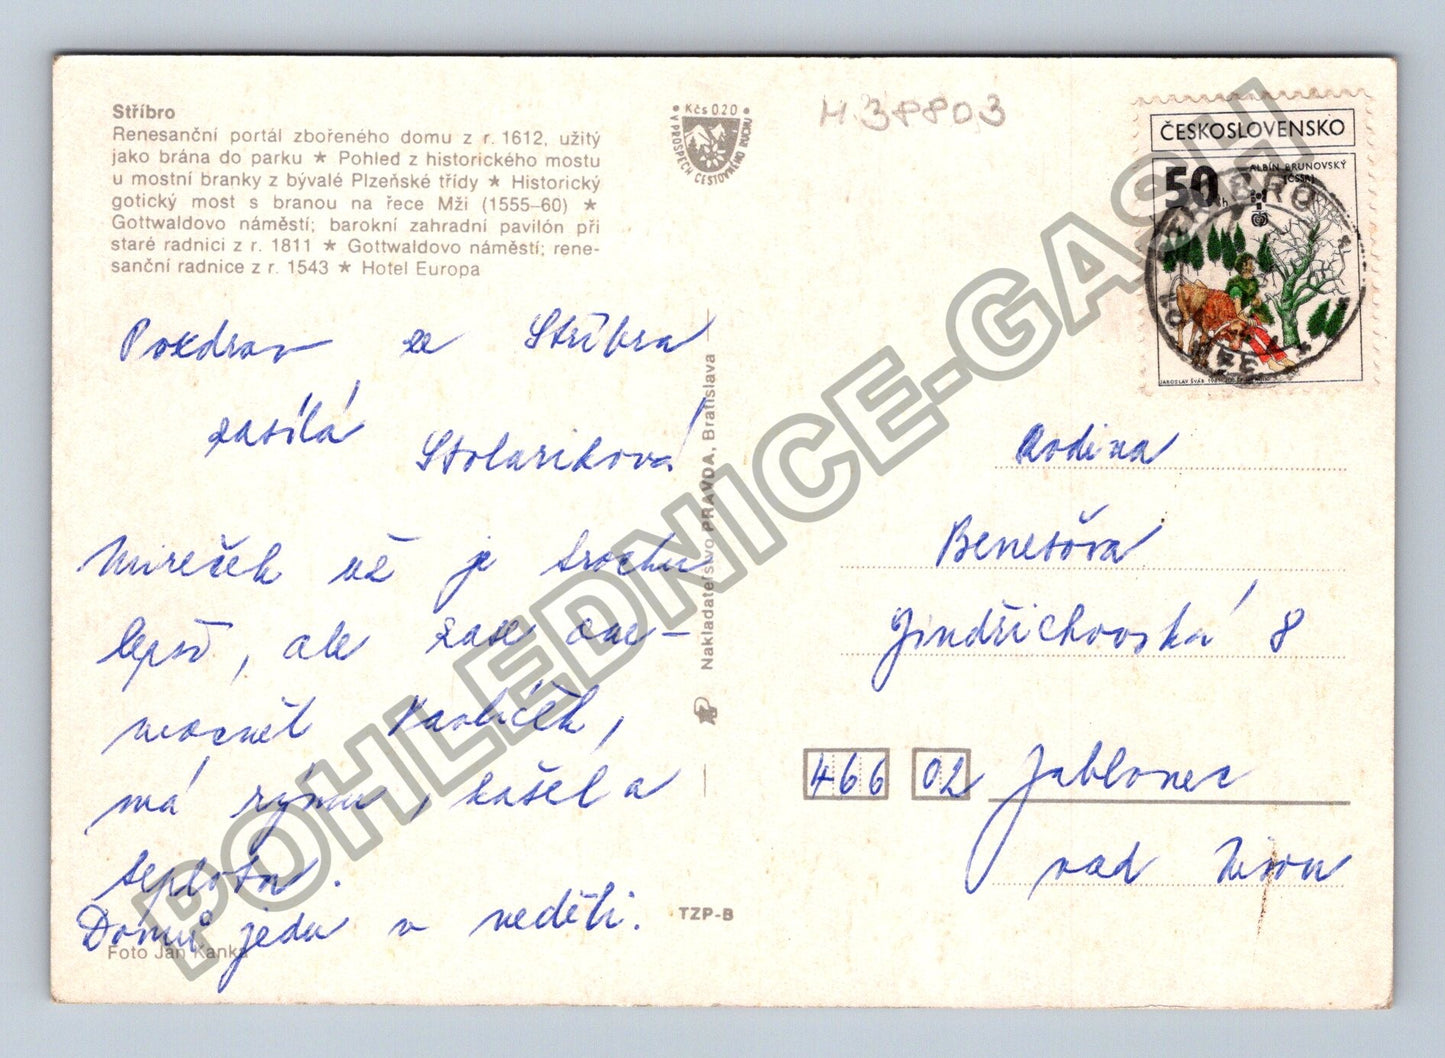 Stříbro
Renesanční portál zbořeného domu z r. 1612, užitý
jako brána do parku ★ Pohled z historického mostu
u mostní branky z bývalé Plzeňské třídy ★ Historický
gotický most s branou na řece Mži (1555-60) ★
Gottwaldovo náměstí; barokní zahradní pavilón při
staré radnici z r. 1811 ★ Gottwaldovo náměstí; rene-
sanční radnice z r. 1543 ★ Hotel Europa
Pozdrav ze Stříbra
zasílá Stolariková
Mireček už je trochu
lepší, ale zase one-
mocněl Pavlíček,
má rýmu, kašel a
teplota.
Domů jedu v neděli.
Foto Jan Kanka
• Kčs 020 •
V PROSPĚCH CESTOVNÉHO RUCHU
H 38803
Nakladatelstvo PRAVDA, Bratislava
TZP-B
ČESKOSLOVENSKO
ALBÍN BRUNOVSKÝ
(ČSSR)
50 h
JAROSLAV ŠVÁB 1981
STŘÍBRO
Rodina
Benešova
Jindřichovská 8
466 02 Jablonec
nad Nisou
POHLEDNICE-GASH